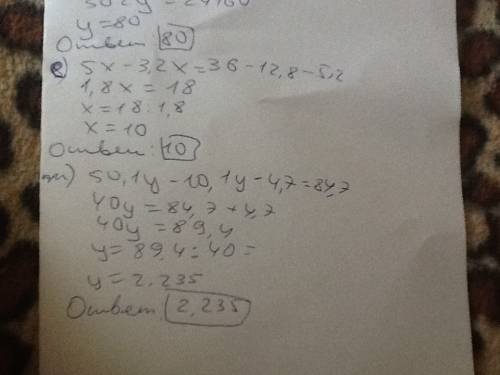 y=80
Ответ 80
е) 5x-3,2x=36-12,8-5,2
1,8x = 18
x=18:1,8
x=10
Ответ: 10
ж) 50,1y-10,1y-4,7=84,7
40y=84,7+4,7
40y=89,4
y=89,4:40=
y=2,235
Ответ 2,235